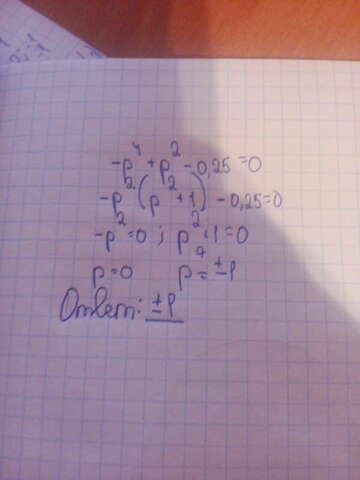 -p⁴ + p² - 0,25 = 0
-p² (p² + 1) - 0,25 = 0
-p² = 0 ; p² + 1 = 0
p = 0 p = ± 1
Ответ: ± 1